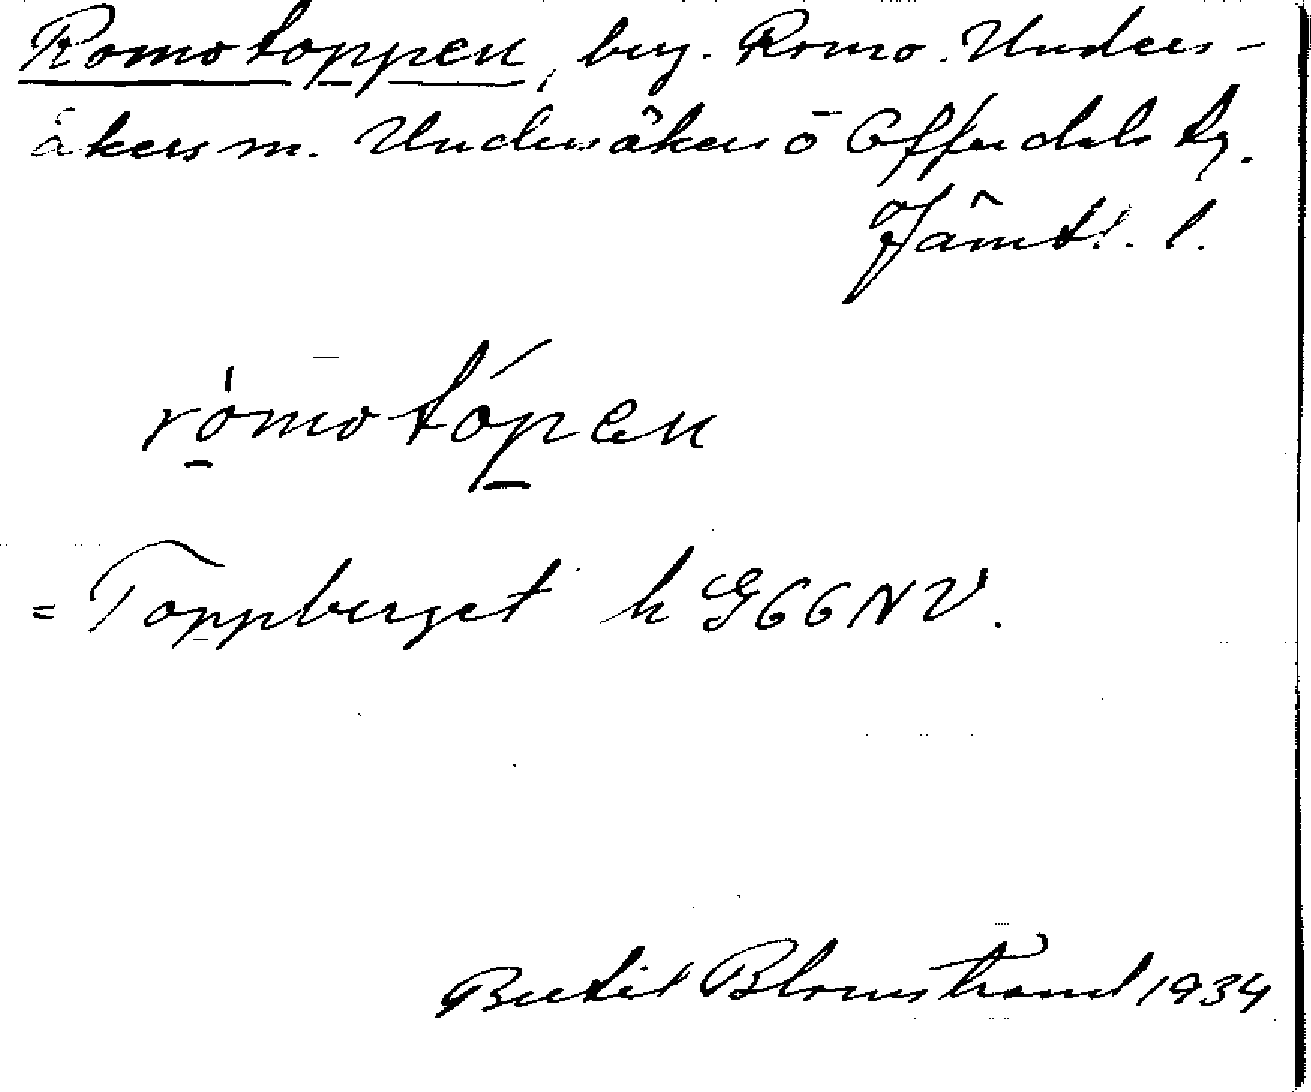 Romotoppen, by. Romo. Unders-
åkers m. Undersåkers o Offerdals tg.
Jämtl. l.
ròmotópen
= Toppberget h G66NV.
Bertil Blomstrand 1934